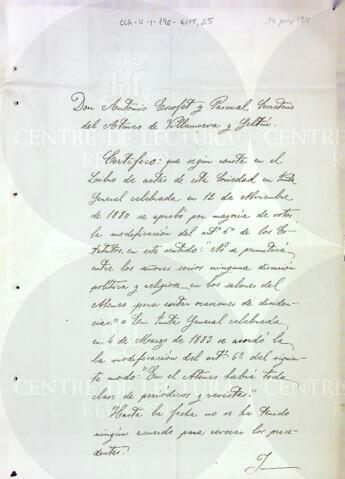 CLR-U-1-190-
Don Antonio Escofet y Pascual, Secretario
del Ateneo de Villanueva y Geltrú.
Certifico: que segun consta en el
Libro de actas de esta Sociedad en Junta
General celebrada en 12 de Noviembre
de 1880 se aprobó por mayoria de votos
la modificación del artº 5º de los Es-
tatutos, en este sentido: "No se permitirá
entre los señores socios ninguna discusión
política y religiosa en los salones del
Ateneo, para evitar ocasiones de disiden-
cias". En Junta General celebrada
en 4 de Marzo de 1883 se acordó la
la modificación del artº 6º del siguien-
te modo: "En el Ateneo habrá toda
clase de periodicos y revistas."
Hasta la fecha no se ha tenido
ningún acuerdo para revocar los prece-
dentes.
CENTRE DE LECTURA
CENTRE DE LECTURA